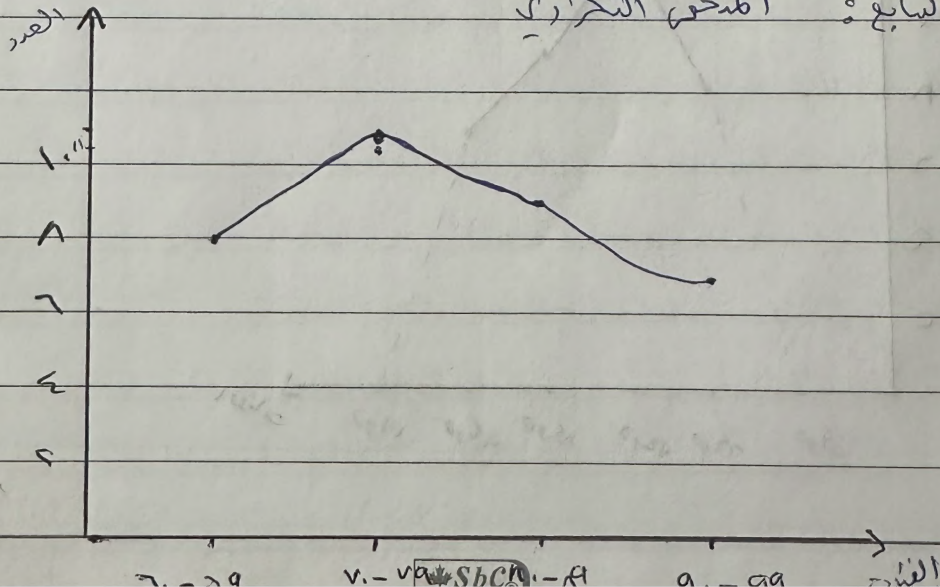 السابع : المنحنى التكراري
العدد
١١
١٠
٨
٦
٤
٢
٦٠-٦٩ ٧٠-٧٩ ٨٠-٨٩ ٩٠-٩٩ الفئات